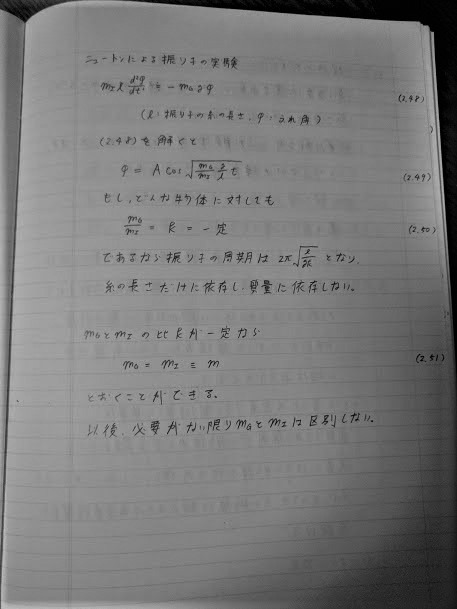 ニュートンによる振り子の実験
m_I l d²φ/dt² = - m_G g φ (2.48)
(l: 振り子の糸の長さ, φ: ふれ角)
(2.48)を解くと
φ = A cos √(m_G/m_I g/l) t (2.49)
もし、どんな物体に対しても
m_G/m_I = k = 一定 (2.50)
であるなら振り子の周期は 2π√(l/gk) となり、
糸の長さだけに依存し、質量に依存しない。
m_Gとm_Iの比kが一定なら
m_G = m_I ≡ m (2.51)
とおくことができる。
以後、必要がない限りm_Gとm_Iは区別しない。